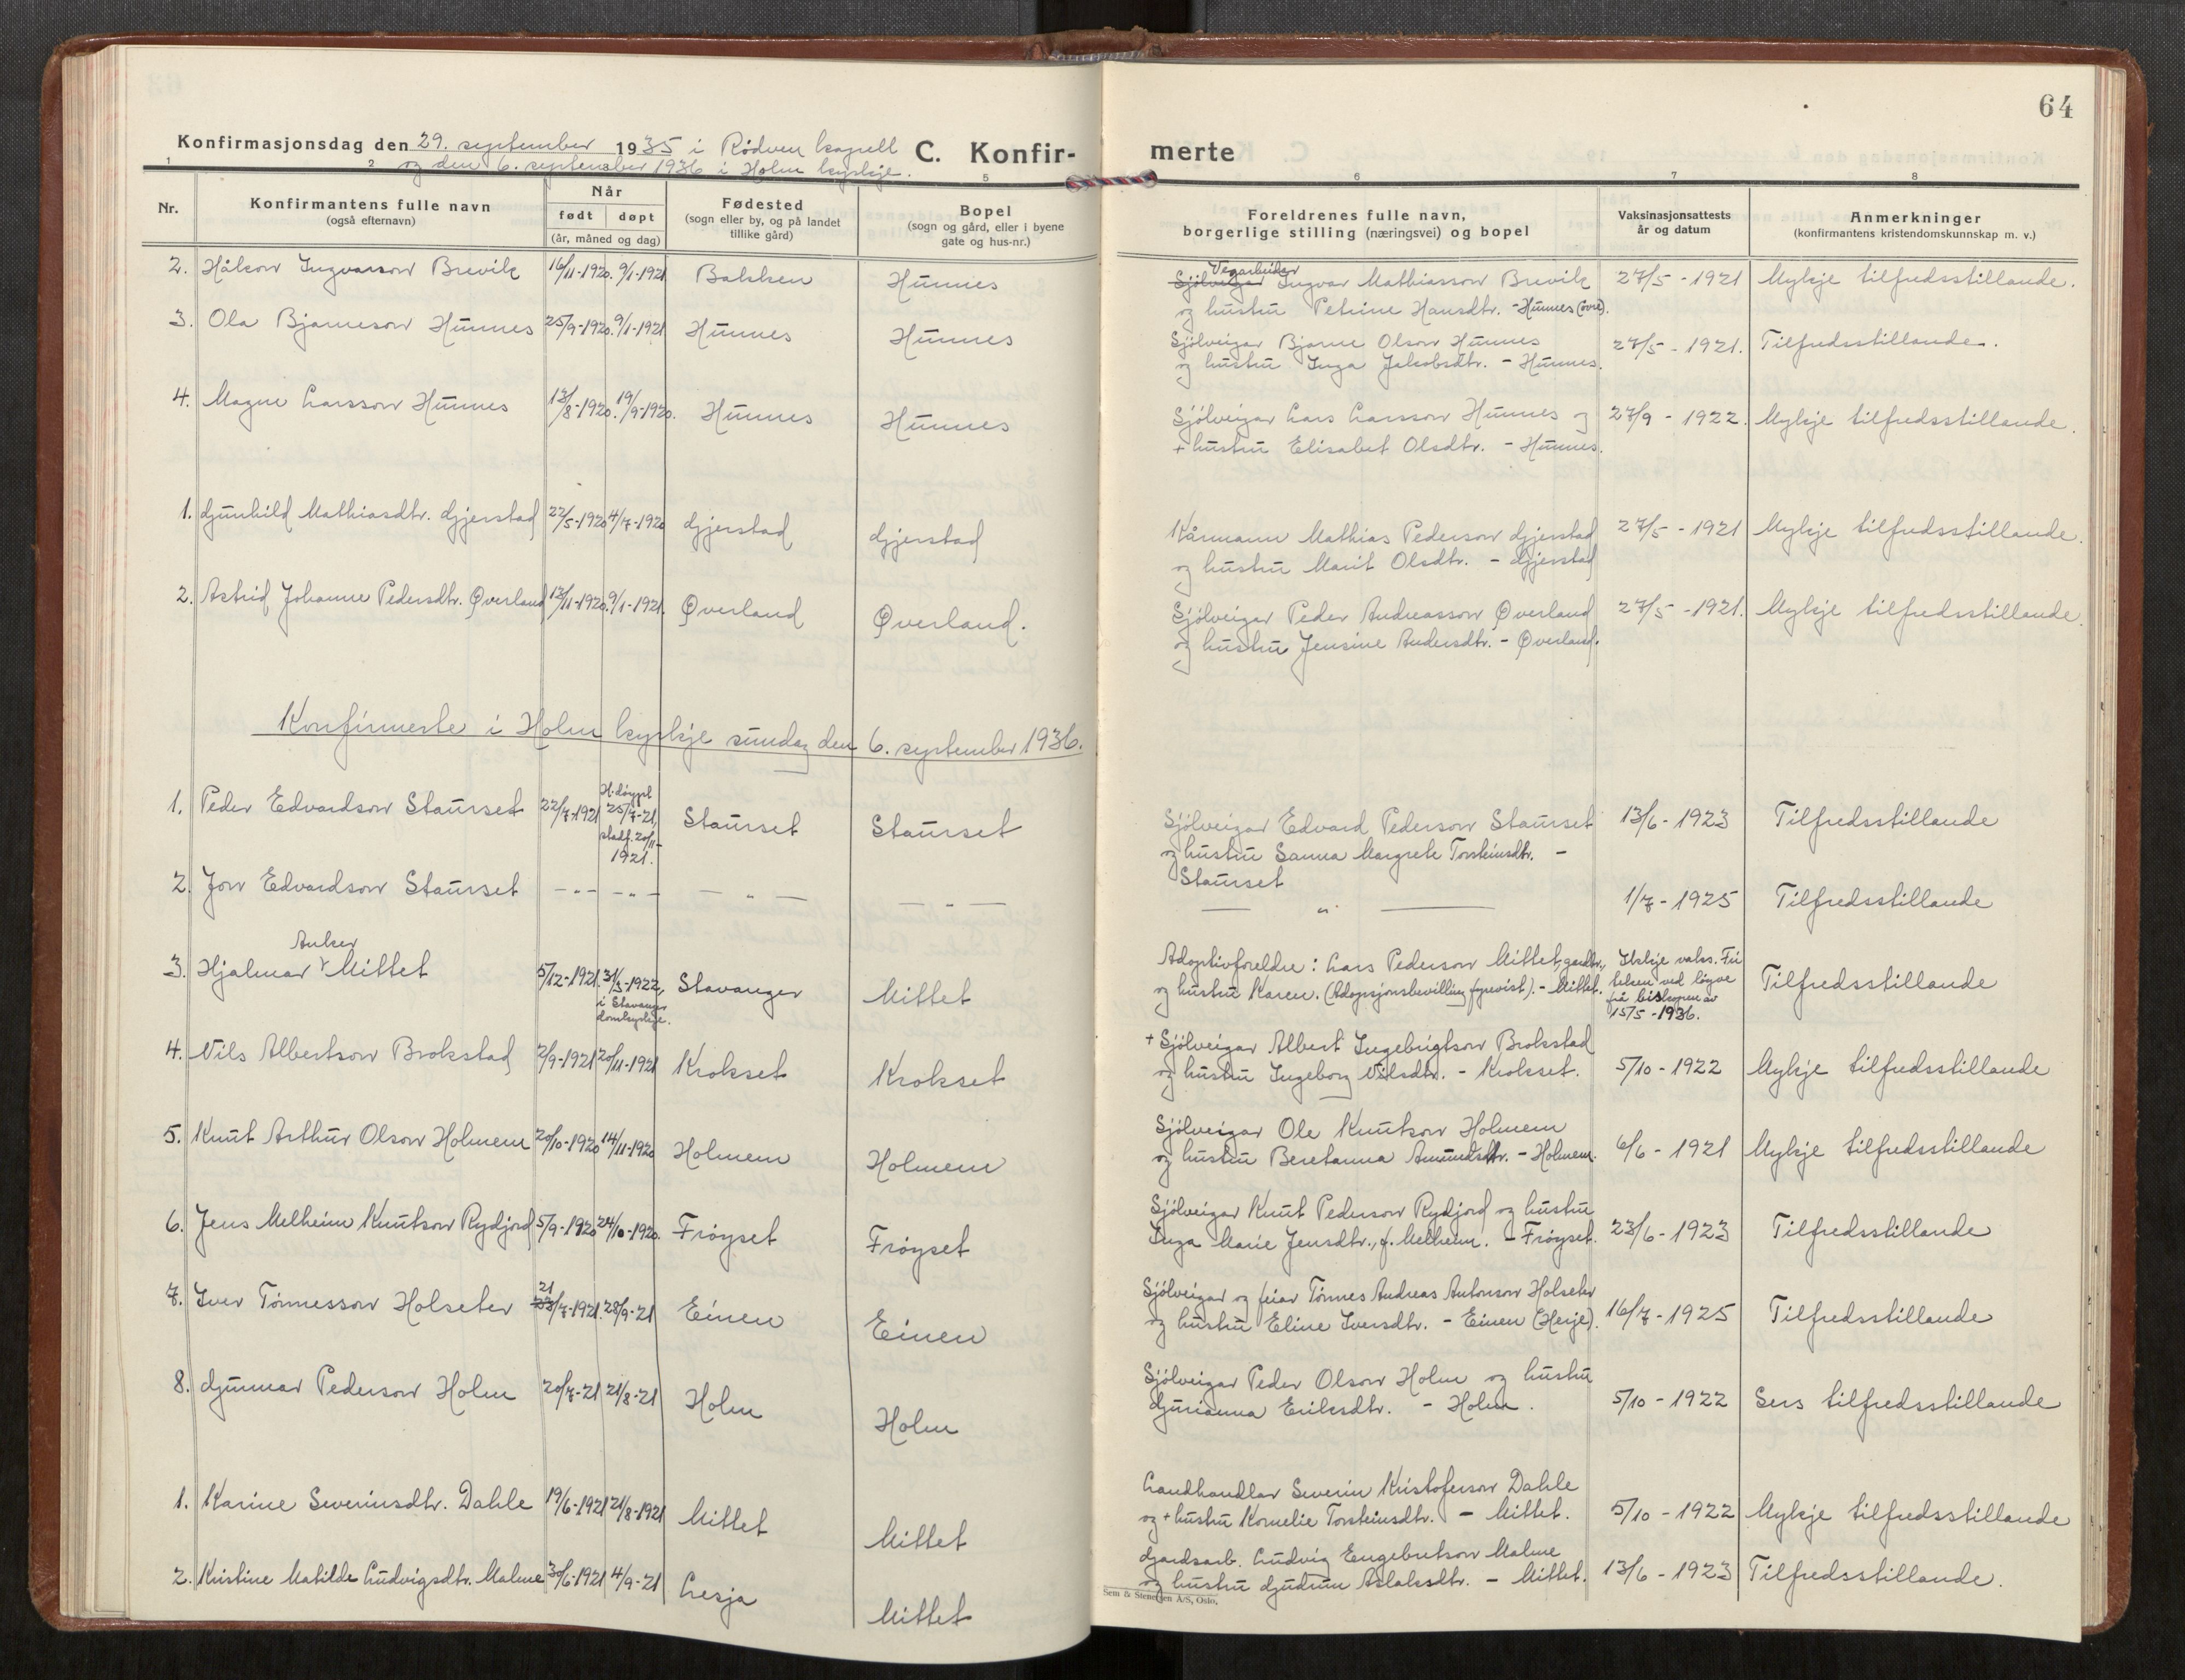 64
Konfirmasjonsdag den 29. september 1935 i Rødven kapell
og den 6. september 1936 i Holm kyrkje.
C. Konfir-
merte
1 2 5 6 7 8
Nr.
Konfirmantens fulle navn
(også efternavn)
Når
født døpt
(år, måned og dag)
Fødested
(sogn eller by, og på landet
tillike gård)
Bopel
(sogn og gård, eller i byene
gate og hus-nr.)
Foreldrenes fulle navn,
borgerlige stilling (næringsvei) og bopel
Vaksinasjonsattests
år og datum
Anmerkninger
(konfirmantens kristendomskunnskap m. v.)
2. Håkon Ingvarson Brevik 16/11-1920. 9/1-1921 Bakken Hunnes
Vegarbeidar
Sjölveigar Ingvar Mathiasson Brevik 27/5 - 1921 Mykje tilfredsstillande.
og hustru Petrine Hansdtr. - Hunnes (øvre).
3. Ola Bjarneson Hunnes 25/9-1920. 9/1-1921 Hunnes Hunnes
Sjölveigar Bjarne Olson Hunnes 27/5 - 1921. Tilfredsstillande.
og hustru Inga Jakobsdtr. - Hunnes.
4. Magne Larsson Hunnes 13/8-1920. 19/9-1920. Hunnes Hunnes
Sjölveigar Lars Larsson Hunnes og 27/9 - 1922. Mykje tilfredsstillande.
+ hustru Elisabet Olsdtr. - Hunnes.
1. Gunhild Mathiasdtr. Gjerstad 22/5-1920 4/7-1920 Gjerstad Gjerstad
Kårmann Mathias Pederson Gjerstad 27/5 - 1921 Mykje tilfredsstillande.
og hustru Marit Olsdtr. - Gjerstad
2. Astrid Johanne Pedersdtr. Øverland 13/11-1920. 9/1-1921. Øverland Øverland.
Sjölveigar Peder Andreasson Øverland 27/5 - 1921. Mykje tilfredsstillande.
og hustru Jensine Andersdtr. - Øverland.
Konfirmerte i Holm kyrkje sundag den 6. september 1936.
1. Peder Edvardson Staurset 22/7-1921 H.døypt
25/7-21,
stadf. 20/11-
1921. Staurset Staurset
Sjölveigar Edvard Pederson Staurset 13/6 - 1923 Tilfredsstillande
og hustru Sanna Margrete Torsteinsdtr. -
Staurset
2. Jon Edvardson Staurset - " - - " - - " - - " -
- " - 1/7 - 1925 Tilfredsstillande
Anker
3. Hjalmar Mittet 5/12-1921. 31/3-1922, Stavanger Mittet
i Stavanger
domkyrkje.
Adoptivforeldre: Lars Pederson Mittet, gardbr., Ikkje vaks. Fri Tilfredsstillande
og hustru Karen. (Adopsjonsbevilling fyrevist). - Mittet. telsen ved løyve
frå biskopen av
15/5 - 1936.
4. Nils Albertson Brokstad 2/9-1921 20/11-1921 Krokset Krokset
+ Sjölveigar Albert Ingebrigtson Brokstad
og hustru Ingeborg Nilsdtr. - Krokset. 5/10 - 1922 Mykje tilfredsstillande
5. Knut Arthur Olson Holmem 20/10-1920 14/11-1920 Holmem Holmem
Sjölveigar Ole Knutson Holmem
og hustru Beretanna Amundsdtr. - Holmem. 6/6 - 1921 Mykje tilfredsstillande
6. Jens Melheim Knutson Rydjord 5/9-1920 24/10-1920. Frøyset Frøyset
Sjölveigar Knut Pederson Rydjord og hustru
Inga Marie Jensdtr., f. Melheim. - Frøyset. 23/6 - 1923 Tilfredsstillande
21
7. Iver Tønnesson Holseter 23/7-1921. 28/9-21 Einen Einen
Sjölveigar og feiar Tønnes Andreas Antonson Holseter
og hustru Eline Iversdtr. - Einen (Herje). 16/7 - 1925 Tilfredsstillande
8. Gunnar Pederson Holm 20/7-21 21/8-21 Holm Holm
Sjölveigar Peder Olson Holm og hustru
Gurianna Eriksdtr. - Holm. 5/10 - 1922 Sers tilfredsstillande
1. Karine Severinsdtr. Dahle 19/6-1921 21/8-1921 Mittet Mittet
Landhandlar Severin Kristoferson Dahle
og + hustru Kornelie Torsteinsdtr. - Mittet. 5/10 - 1922 Mykje tilfredsstillande
2. Kristine Matilde Ludvigsdtr. Malme 30/6-1921 4/9-21 Lesja Mittet
Gardsarb. Ludvig Engebretson Malme
og hustru Gudrun Aslaksdtr. - Mittet. 13/6 - 1923 Tilfredsstillande.
Sem & Stenersen A/S, Oslo.